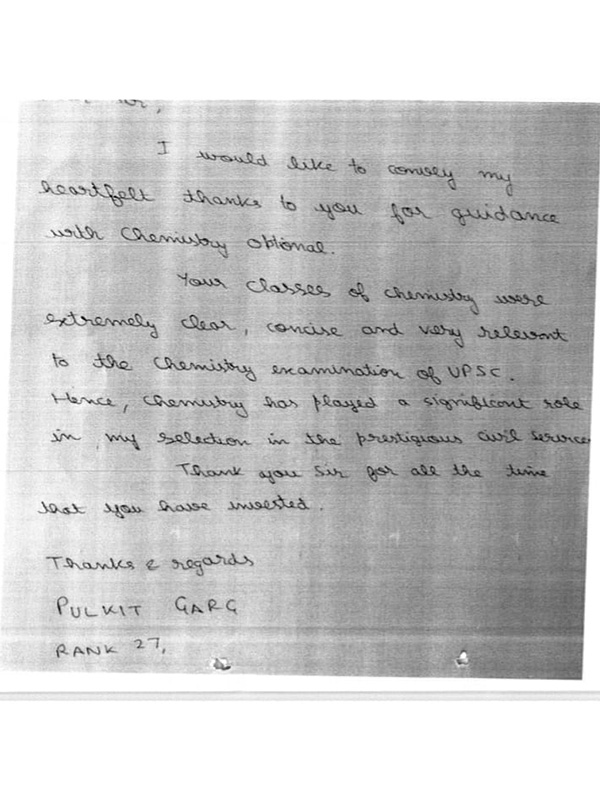 sir,
I would like to convey my
heartfelt thanks to you for guidance
with Chemistry optional.
Your classes of chemistry were
extremely clear, concise and very relevant
to the chemistry examination of UPSC.
Hence, chemistry has played a significant role
in my selection in the prestigious civil services
Thank you sir for all the time
that you have invested.
Thanks & regards
PULKIT GARG
RANK 27,